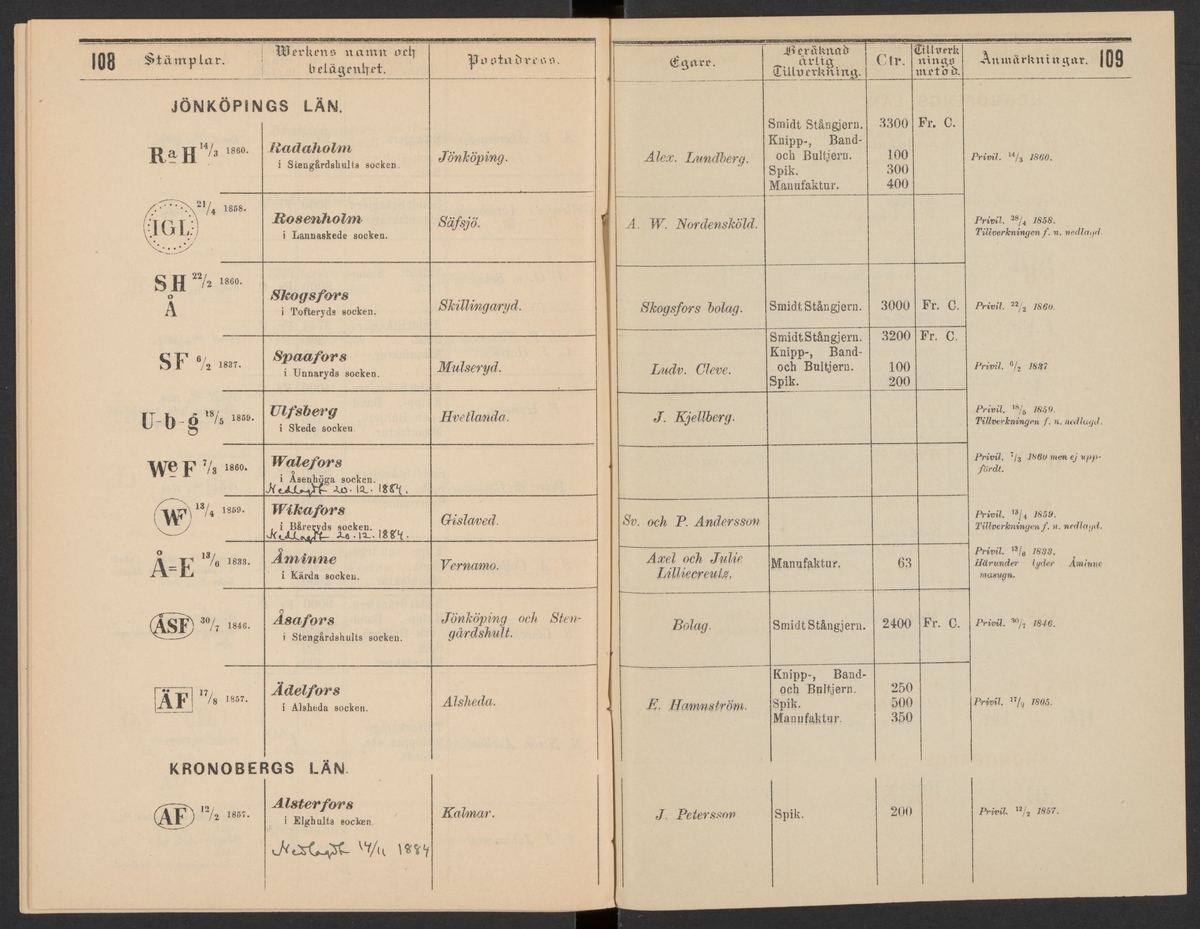 108
Stämplar.
Werkens namn och
belägenhet.
Postadress.
Egare.
Beräknad
årlig
Tillverkning.
Ctr.
Tillverk
nings
metod.
Anmärkningar.
109
JÖNKÖPINGS LÄN.
RaH 14/3 1860.
Radaholm
i Stengårdshults socken.
Jönköping.
Alex. Lundberg.
Smidt Stångjern. 3300 Fr. C.
Knipp-, Band-
och Bultjern. 100
Spik. 300
Manufaktur. 400
Privil. 14/3 1860.
IGL 21/4 1858.
Rosenholm
i Lannaskede socken.
Säfsjö.
A. W. Nordensköld.
Privil. 28/4 1858.
Tillverkningen f. n. nedlagd.
SH 22/2 1860.
Å
Skogsfors
i Tofteryds socken.
Skillingaryd.
Skogsfors bolag.
Smidt Stångjern. 3000 Fr. C.
Privil. 22/2 1860.
SF 6/2 1837.
Spaafors
i Unnaryds socken.
Mulseryd.
Ludv. Cleve.
Smidt Stångjern. 3200 Fr. C.
Knipp-, Band-
och Bultjern. 100
Spik. 200
Privil. 6/2 1837
U-b-g 18/5 1859.
Ulfsberg
i Skede socken
Hvetlanda.
J. Kjellberg.
Privil. 18/5 1859.
Tillverkningen f. n. nedlagd.
WeF 7/3 1860.
Walefors
i Åsenhöga socken.
Nedlagdt 20.12.1884.
Privil. 7/3 1860 men ej upp-
fördt.
WF 13/4 1859.
Wikafors
i Båreryds socken.
Nedlagdt 20.12.1884.
Gislaved.
Sv. och P. Andersson
Privil. 13/4 1859.
Tillverkningen f. n. nedlagd.
Å=E 13/6 1833.
Åminne
i Kärda socken.
Vernamo.
Axel och Julie
Lilliecreutz.
Manufaktur. 63
Privil. 13/6 1833.
Härunder lyder Åminne
masugn.
ÅSF 30/7 1846.
Åsafors
i Stengårdshults socken.
Jönköping och Sten-
gårdshult.
Bolag.
Smidt Stångjern. 2400 Fr. C.
Privil. 30/7 1846.
ÄF 17/8 1857.
Ädelfors
i Alsheda socken.
Alsheda.
E. Hamnström.
Knipp-, Band-
och Bultjern. 250
Spik. 500
Manufaktur. 350
Privil. 17/9 1805.
KRONOBERGS LÄN.
AF 12/2 1857.
Alsterfors
i Elghults socken
Nedlagdt 14/11 1884
Kalmar.
J. Petersson
Spik. 200
Privil. 12/2 1857.